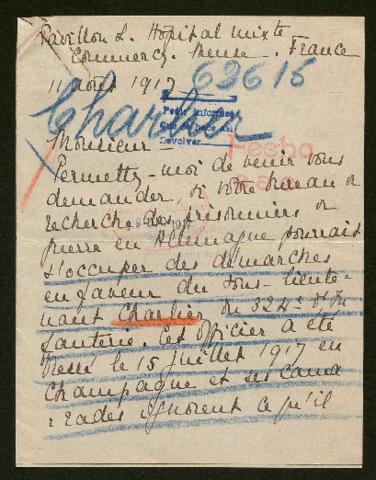 Pavillon L. Hôpital mixte
Commercy. Meuse. France
11 août 1917
63615
Charlier
Pedir informes
Devolver
Hecho
Monsieur -
Permettez-moi de venir vous
demander, si votre bureau de
recherche des prisonniers de
guerre en Allemagne pourrait
s'occuper des démarches
en faveur du sous-lieute-
nant Charlier du 324e d'In
fanterie. Cet officier a été
blessé le 15 juillet 1917 en
Champagne et ses cama
rades ignorent ce qu'il